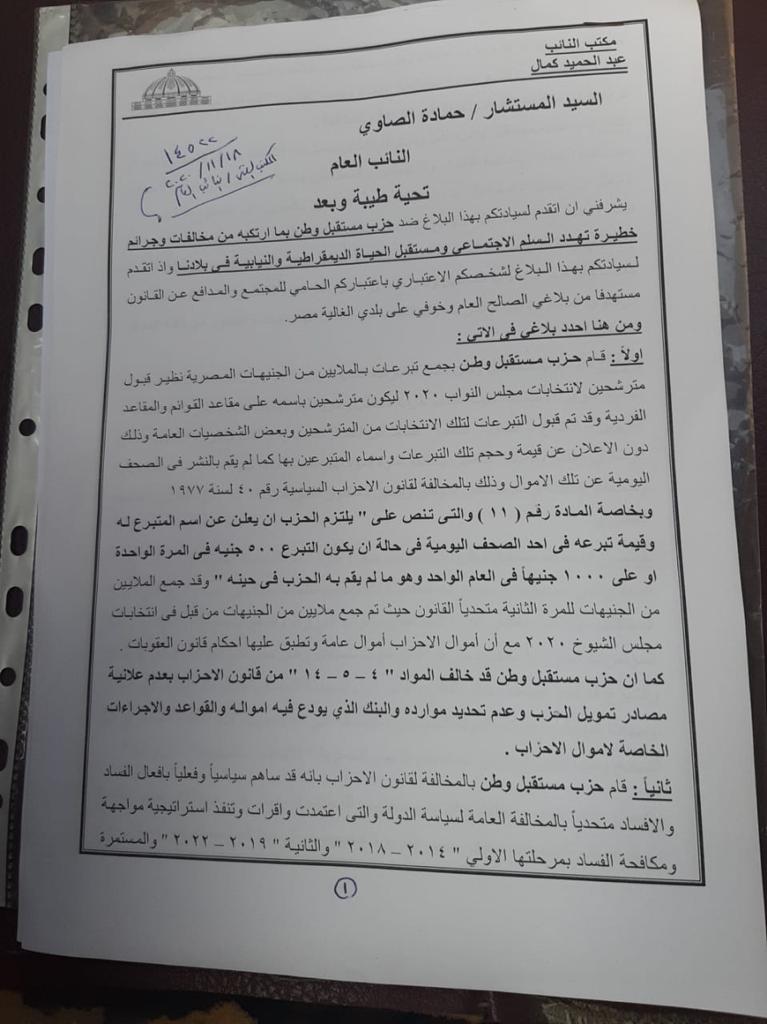 مكتب النائب
عبد الحميد كمال
السيد المستشار / حمادة الصاوي
النائب العام
١٤٥٢٢
٢٠٢٠/١١/١٨
تحية طيبة وبعد
يشرفني ان اتقدم لسيادتكم بهذا البلاغ ضد حزب مستقبل وطن بما ارتكبه من مخالفات وجرائم
خطيرة تهدد السلم الاجتماعي ومستقبل الحياة الديمقراطية والنيابية فى بلادنا واذ اتقدم
لسيادتكم بهذا البلاغ لشخصكم الاعتباري باعتباركم الحامي للمجتمع والمدافع عن القانون
مستهدفا من بلاغي الصالح العام وخوفي على بلدي الغالية مصر.
ومن هنا احدد بلاغي فى الاتي :
اولاً : قام حزب مستقبل وطن بجمع تبرعات بالملايين من الجنيهات المصرية نظير قبول
مترشحين لانتخابات مجلس النواب ٢٠٢٠ ليكون مترشحين باسمه على مقاعد القوائم والمقاعد
الفردية وقد تم قبول التبرعات لتلك الانتخابات من المترشحين وبعض الشخصيات العامة وذلك
دون الاعلان عن قيمة وحجم تلك التبرعات واسماء المتبرعين بها كما لم يقم بالنشر فى الصحف
اليومية عن تلك الاموال وذلك بالمخالفة لقانون الاحزاب السياسية رقم ٤٠ لسنة ١٩٧٧
وبخاصة المادة رقم ( ١١ ) والتى تنص على " يلتزم الحزب ان يعلن عن اسم المتبرع له
وقيمة تبرعه فى احد الصحف اليومية فى حالة ان يكون التبرع ٥٠٠ جنيه فى المرة الواحدة
او على ١٠٠٠ جنيهاً فى العام الواحد وهو ما لم يقم به الحزب فى حينه " وقد جمع الملايين
من الجنيهات للمرة الثانية متحدياً القانون حيث تم جمع ملايين من الجنيهات من قبل فى انتخابات
مجلس الشيوخ ٢٠٢٠ مع أن أموال الاحزاب أموال عامة وتطبق عليها احكام قانون العقوبات .
كما ان حزب مستقبل وطن قد خالف المواد " ٤ – ٥ – ١٤ " من قانون الاحزاب بعدم علانية
مصادر تمويل الحزب وعدم تحديد موارده والبنك الذي يودع فيه امواله والقواعد والاجراءات
الخاصة لاموال الاحزاب .
ثانياً : قام حزب مستقبل وطن بالمخالفة لقانون الاحزاب بانه قد ساهم سياسياً وفعلياً بافعال الفساد
والافساد متحدياً بالمخالفة العامة لسياسة الدولة والتى اعتمدت واقرات وتنفذ استراتيجية مواجهة
ومكافحة الفساد بمرحلتها الاولي " ٢٠١٤ – ٢٠١٨ " والثانية " ٢٠١٩ – ٢٠٢٢ " والمستمرة
١